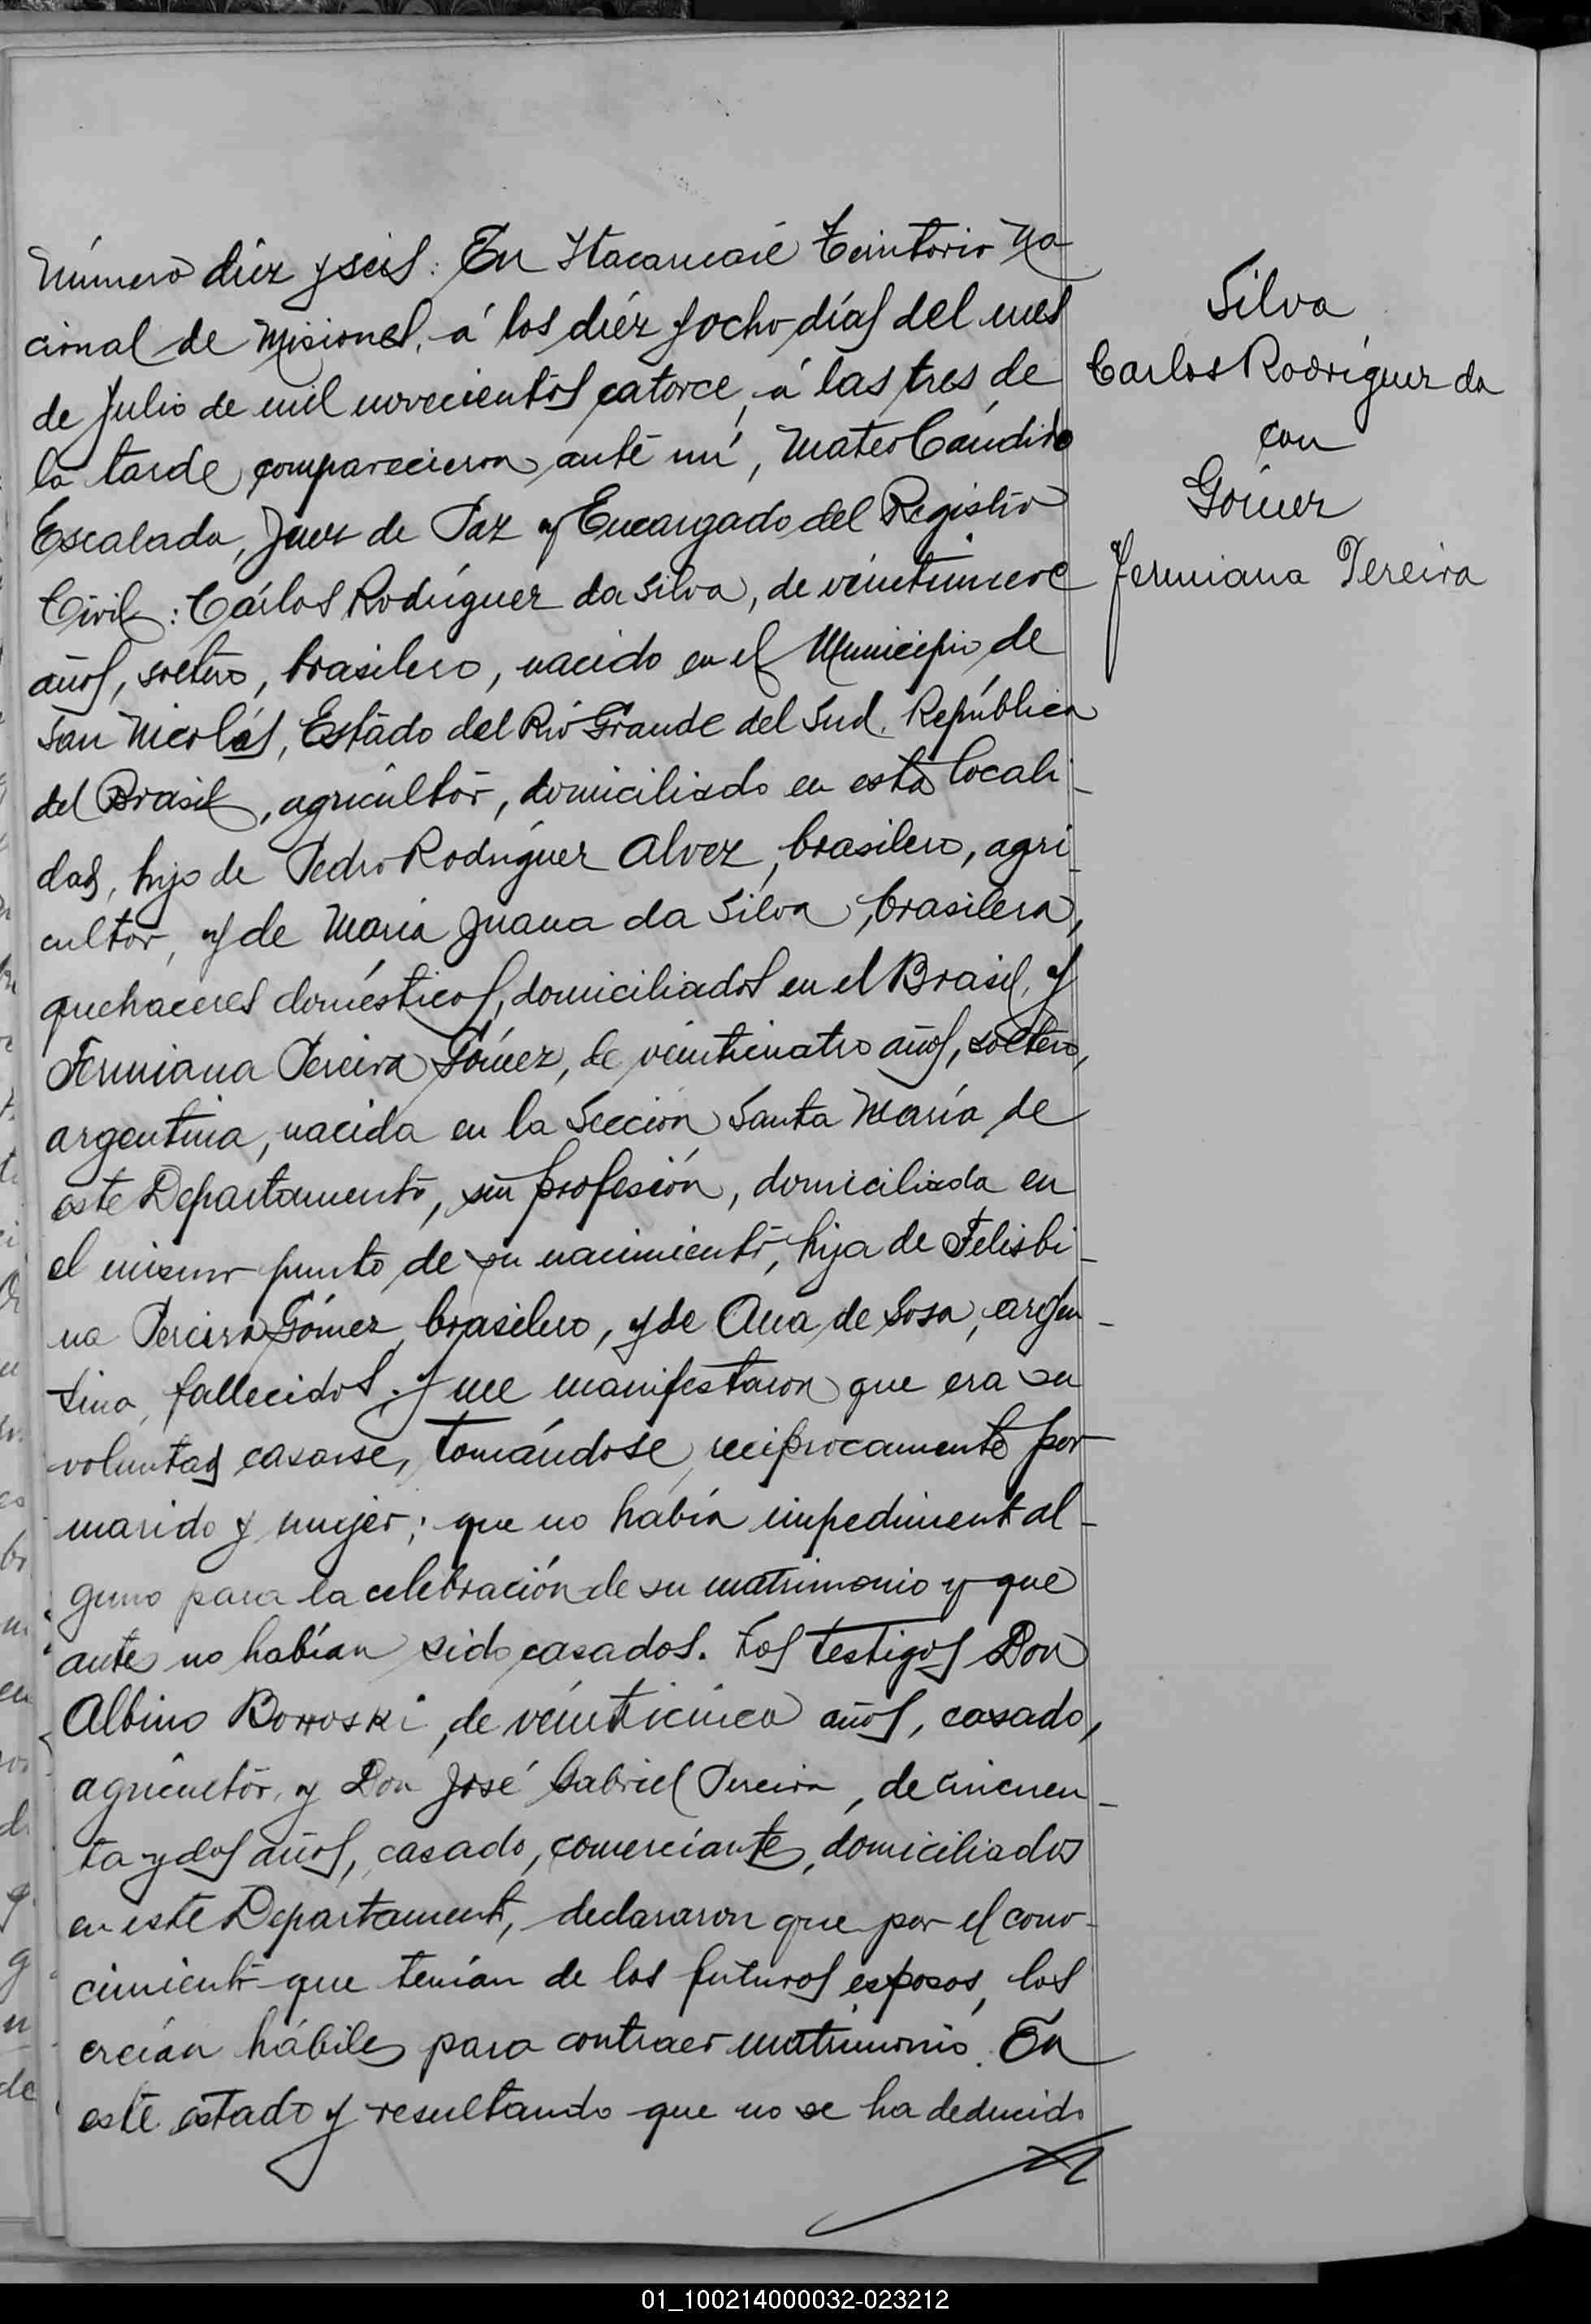 Número diez y seis: En Itacaruaré Territorio Na
cional de Misiones, á los diéz y ocho días del mes
de Julio de mil novecientos catorce, á las tres de
la tarde comparecieron ante mí, Mateo Cándido
Escalada, Juez de Paz y Encargado del Registro
Civil: Cárlos Rodríguez da Silva, de veintinueve
años, soltero, brasilero, nacido en el Municipio de
San Nicolás, Estado del Río Grande del Sud, República
del Brasil, agricultor, domiciliado en esta locali-
dad, hijo de Pedro Rodríguez Alvez, brasilero, agri-
cultor, y de María Juana da Silva, brasilera,
quehaceres domésticos, domiciliados en el Brasil, y
Fermiana Pereira Gómez, de veinticuatro años, soltera,
argentina, nacida en la Sección Santa María de
este Departamento, sin profesión, domiciliada en
el mismo punto de su nacimiento, hija de Felisbi-
na Pereira Gómez, brasilero, y de Ana de Sosa, argen-
tina, fallecidos, y me manifestaron que era su
voluntad casarse, tomándose recíprocamente por
marido y mujer; que no había impedimento al-
guno para la celebración de su matrimonio y que
antes no habían sido casados. Los testigos Don
Albino Borroski, de veinticinco años, casado,
agricultor, y Don José Gabriel Pereira, de cincuen-
ta y dos años, casado, comerciante, domiciliados
en este Departamento, declararon que por el cono-
cimiento que tenían de los futuros esposos, los
creían hábiles para contraer matrimonio. En
este estado y resultando que no se ha deducido
Silva
Carlos Rodríguez da
con
Gómez
Fermiana Pereira
01_100214000032-023212